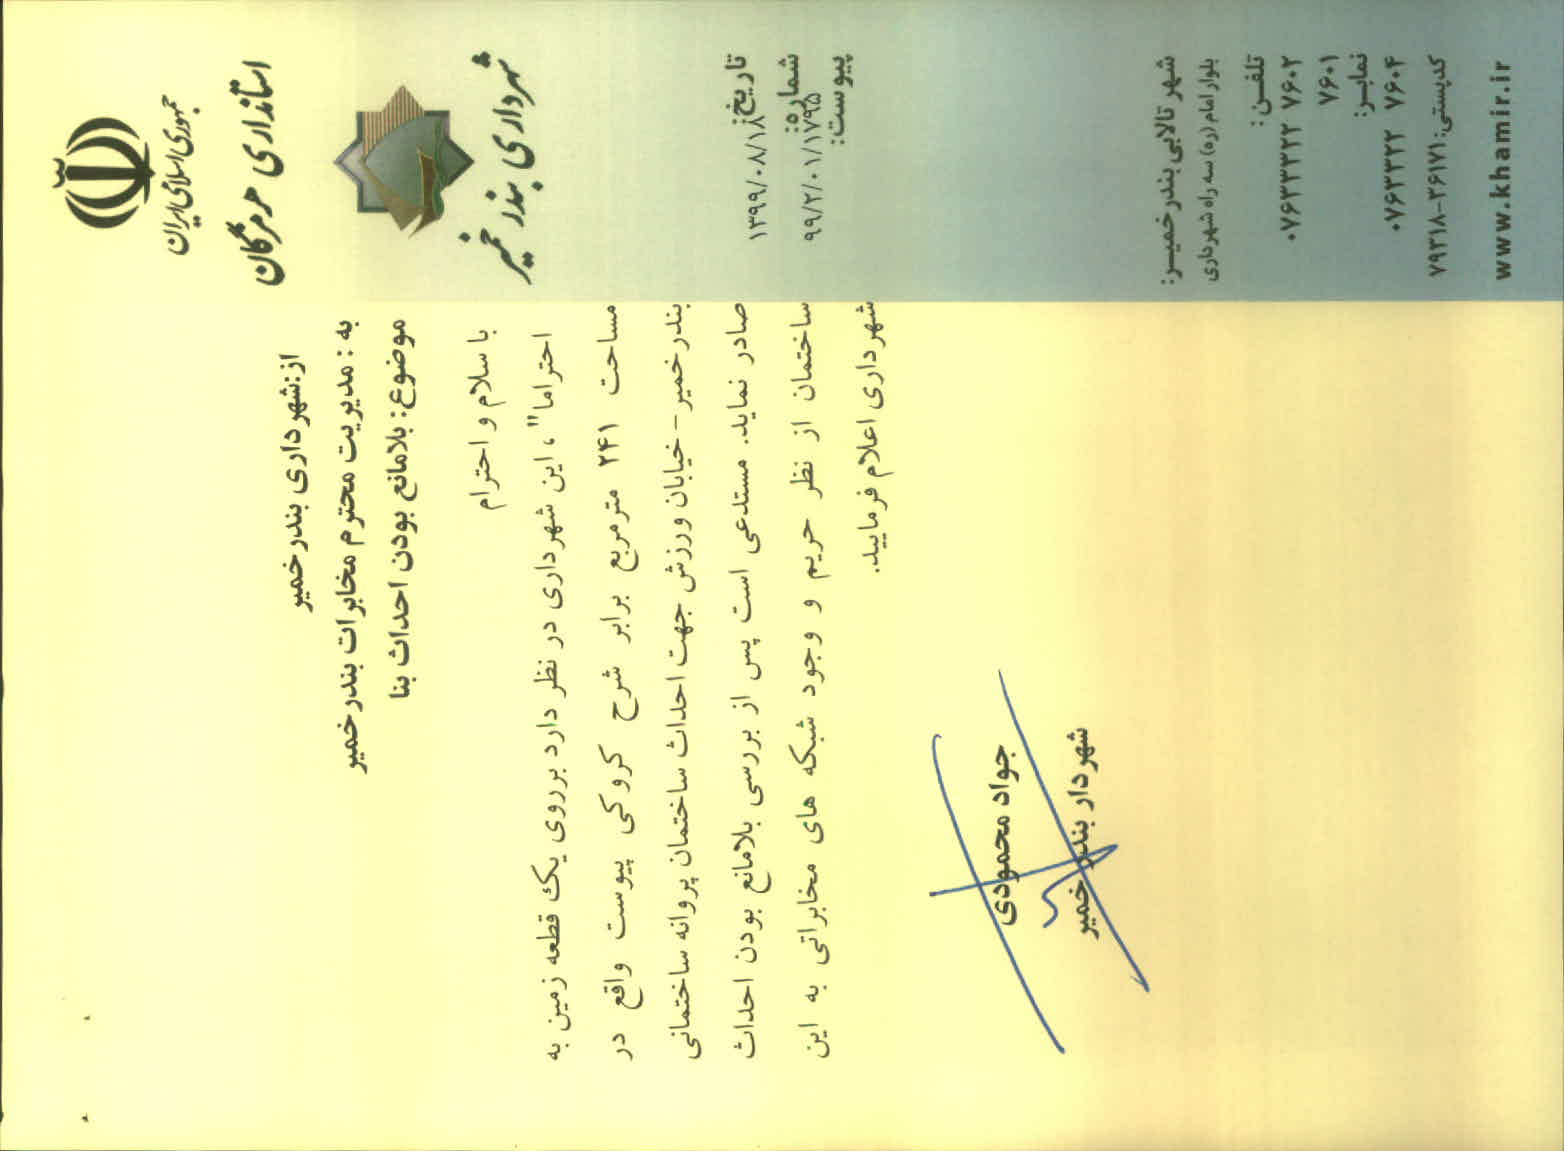 جمهوری اسلامی ایران
استانداری هرمزگان
شهرداری بندر خمیر
تاریخ: ۱۳۹۹/۰۸/۱۸
شماره: ۹۹/۲/۰۱/۱۷۹۵
پیوست:
از:شهرداری بندرخمیر
به : مدیریت محترم مخابرات بندرخمیر
موضوع: بلامانع بودن احداث بنا
با سلام و احترام
احتراما"، این شهرداری در نظر دارد برروی یک قطعه زمین به
مساحت ۲۴۱ مترمربع برابر شرح کروکی پیوست واقع در
بندرخمیر-خیابان ورزش جهت احداث ساختمان پروانه ساختمانی
صادر نماید. مستدعی است پس از بررسی بلامانع بودن احداث
ساختمان از نظر حریم و وجود شبکه های مخابراتی به این
شهرداری اعلام فرمایید.
جواد محمودی
شهردار بندر خمیر
شهر تالابی بندر خمیـر:
بلوار امام (ره) سه راه شهرداری
تلفـن:
۰۷۶۳۳۳۲۲ ۷۶۰۲
۷۶۰۱
نمابـر:
۰۷۶۳۳۲۲ ۷۶۰۴
کدپستی: ۷۹۳۱۸-۲۶۱۷۱
www.khamir.ir